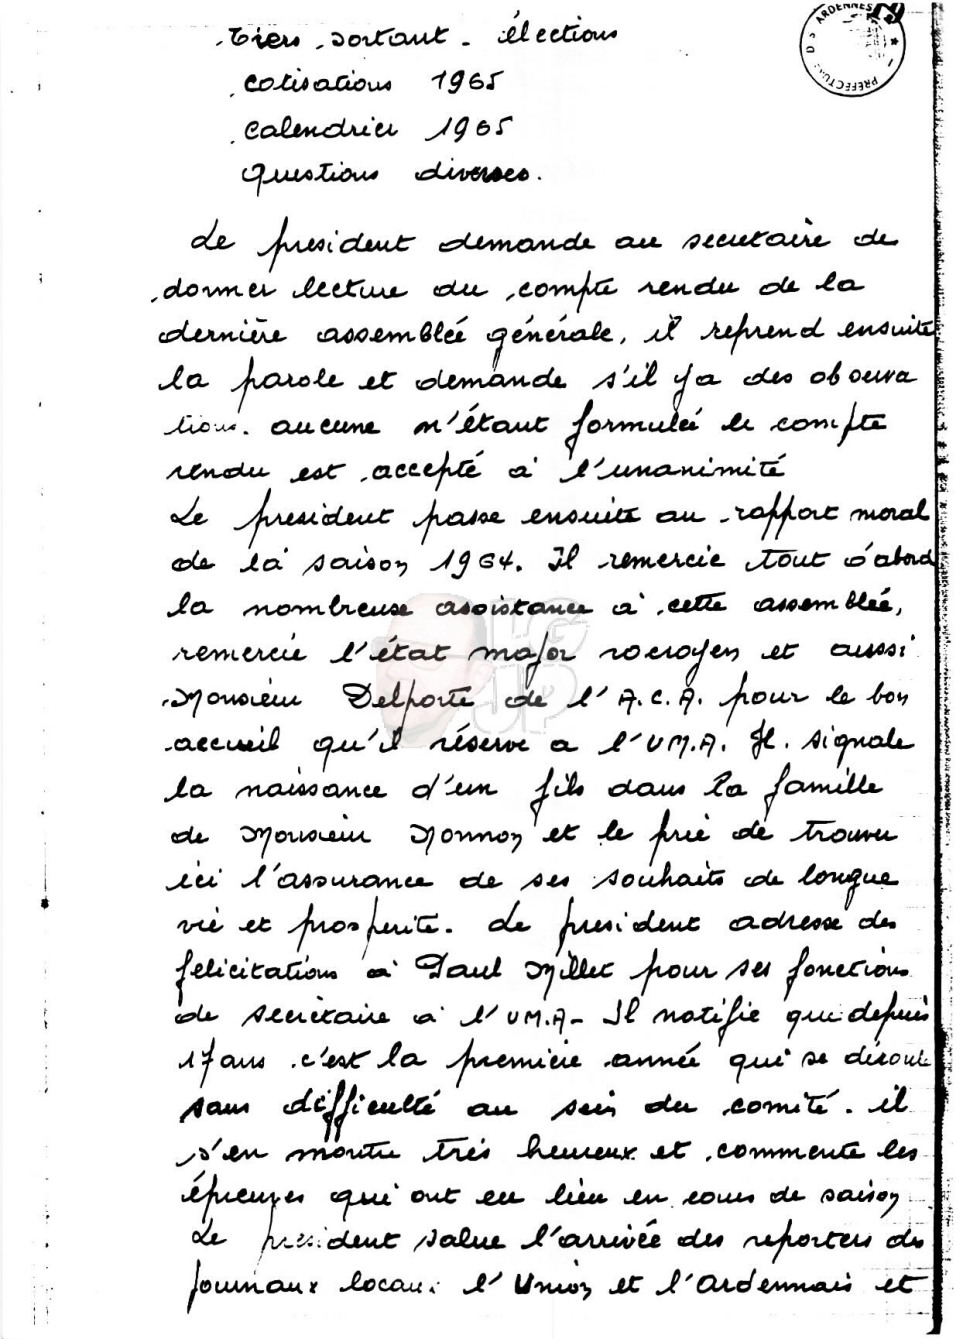 79
PREFECTURE DES ARDENNES
Tiers sortant - élections
cotisations 1965
calendrier 1965
Questions diverses.
Le president demande au secretaire de
donner lecture du compte rendu de la
dernière assemblée générale, il reprend ensuite
la parole et demande s'il y a des observa
tions. aucune n'étant formulée le compte
rendu est accepté à l'unanimité
Le president passe ensuite au rapport moral
de la saison 1964. Il remercie tout d'abord
la nombreuse assistance à cette assemblée,
remercie l'état major rocroyen et aussi
Monsieur Delporte de l'A.C.A. pour le bon
accueil qu'il réserve a l'UMA. Il signale
la naissance d'un fils dans la famille
de Monsieur Monnon et le prie de trouver
ici l'assurance de ses souhaits de longue
vie et prosperite. Le president adresse des
felicitations à Paul Millet pour ses fonctions
de secrétaire à l'UMA - Il notifie que depuis
17 ans c'est la première année qui se déroule
sans difficulté au sein du comité. il
s'en montre très heureux et commente les
épreuves qui ont eu lieu en cours de saison
Le president salue l'arrivée des reporters des
journaux locaux l'Union et l'Ardennais et